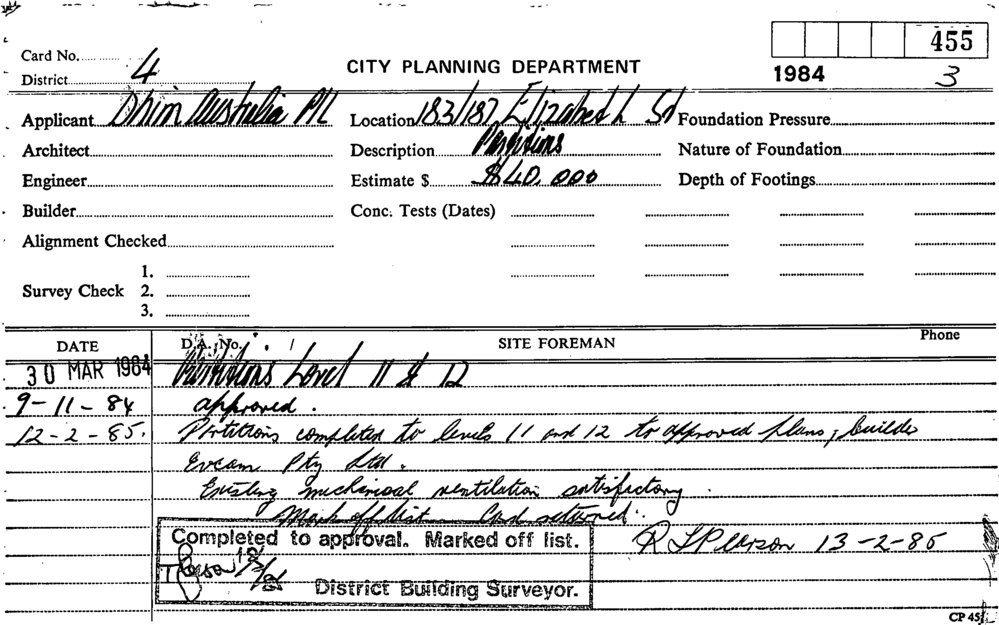 455
Card No.
CITY PLANNING DEPARTMENT
1984 3
District 4
Applicant Dhim Australia P/L Location 183/187 Elizabeth St Foundation Pressure
Architect Description Partitions Nature of Foundation
Engineer Estimate $ $40,000 Depth of Footings
Builder Conc. Tests (Dates)
Alignment Checked
1.
Survey Check 2.
3.
DATE D.A. No. / SITE FOREMAN Phone
30 MAR 1984 Partitions Level 11 & 12
9-11-84 approved.
12-2-85. Partitions completed to levels 11 and 12 to approved plans; builder
Evcam Pty Ltd.
Existing mechanical ventilation satisfactory.
Mark off list Card returned.
Completed to approval. Marked off list. 13-2-85
District Building Surveyor.
CP 45